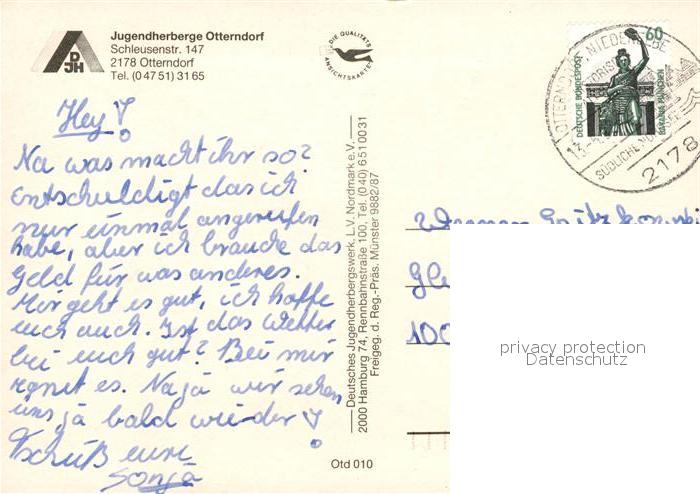 Jugendherberge Otterndorf
Schleusenstr. 147
2178 Otterndorf
Tel. (0 47 51) 31 65
DJH
DIE QUALITÄTS
ANSICHTSKARTE
60
DEUTSCHE BUNDESPOST
BAVARIA MÜNCHEN
2178
Hey!
Na was macht ihr so?
Entschuldigt das ich
nur einmal angerufen
habe, aber ich brauche das
Geld für was anderes.
Mir geht es gut, ich hoffe
euch auch. Ist das Wetter
bei euch gut? Bei mir
regnet es. Naja wir sehen
uns ja bald wieder!
Tschüß eure
Sonja
Deutsches Jugendherbergswerk, L.V. Nordmark e.V.
2000 Hamburg 74, Rennbahnstraße 100, Tel. (0 40) 6 51 00 31
Freigeg. d. Reg.-Präs. Münster 9882/87
100
privacy protection
Datenschutz
Otd 010